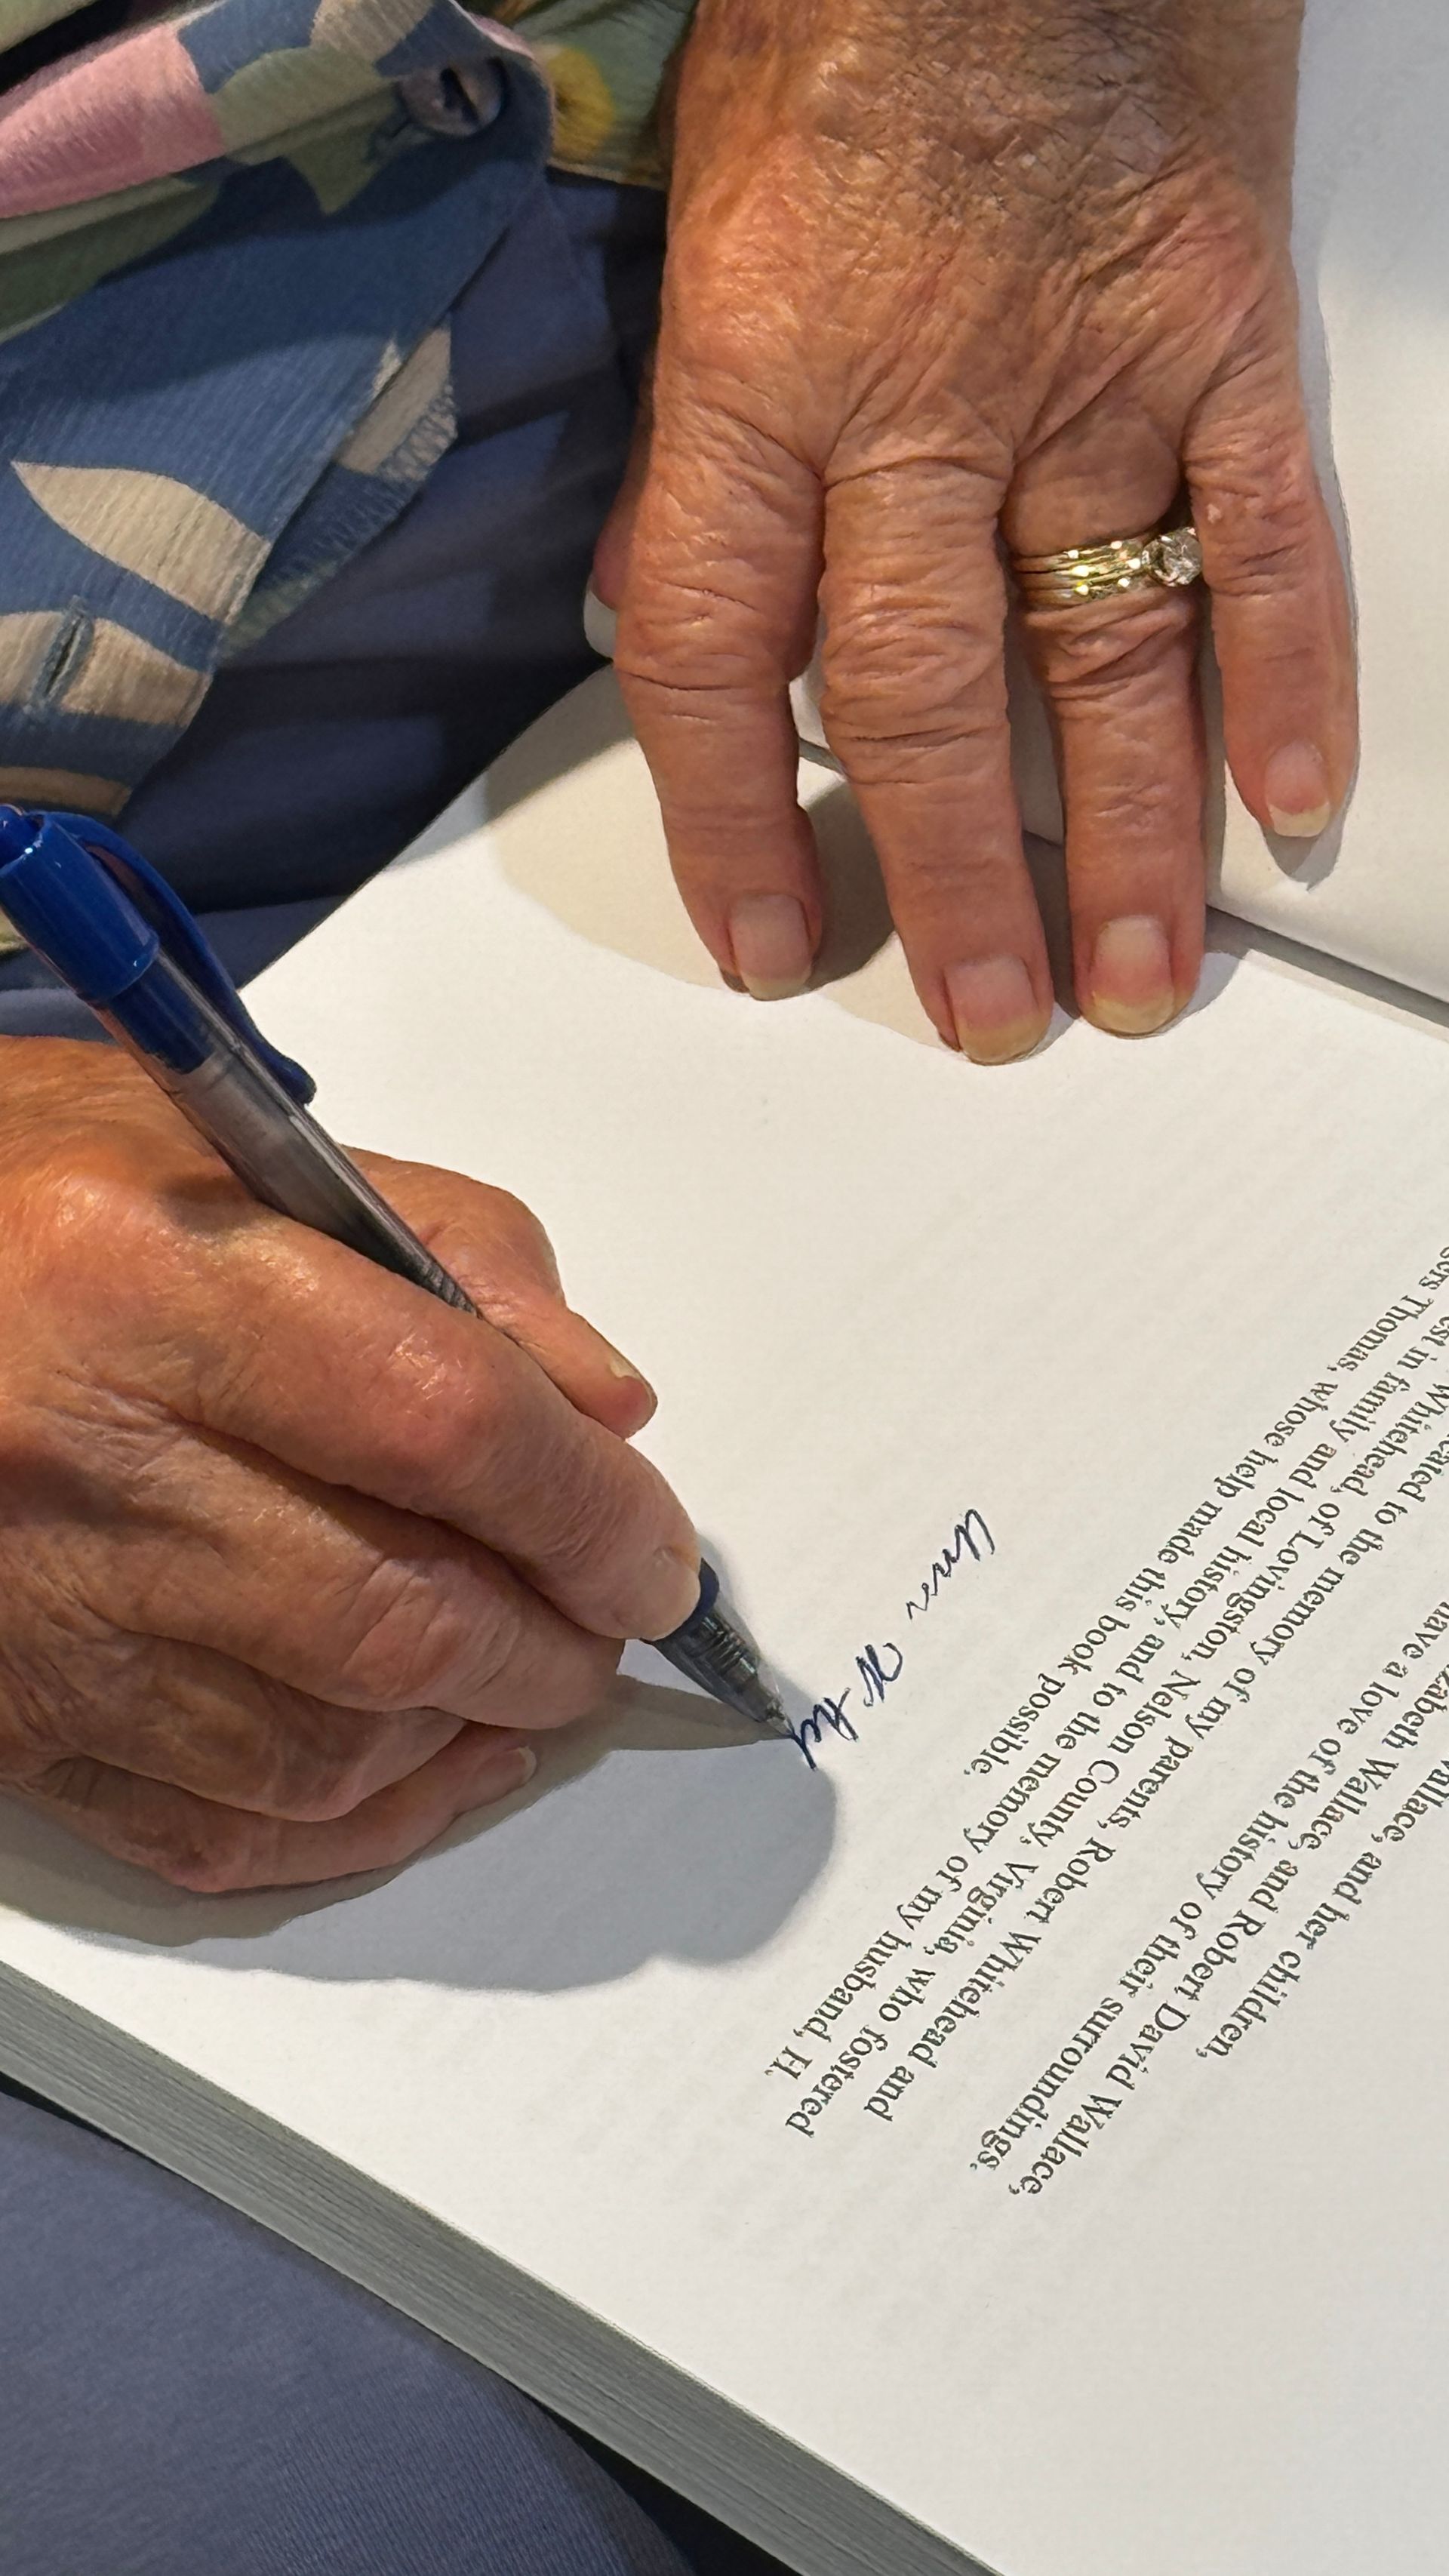 and her children,
Wallace, and Robert David Wallace,
have a love of the history of their surroundings.
to the memory of my parents, Robert Whitehead and
Whitehead, of Lovingston, Nelson County, Virginia, who fostered
in family and local history, and to the memory of my husband, H.
Thomas, whose help made this book possible,